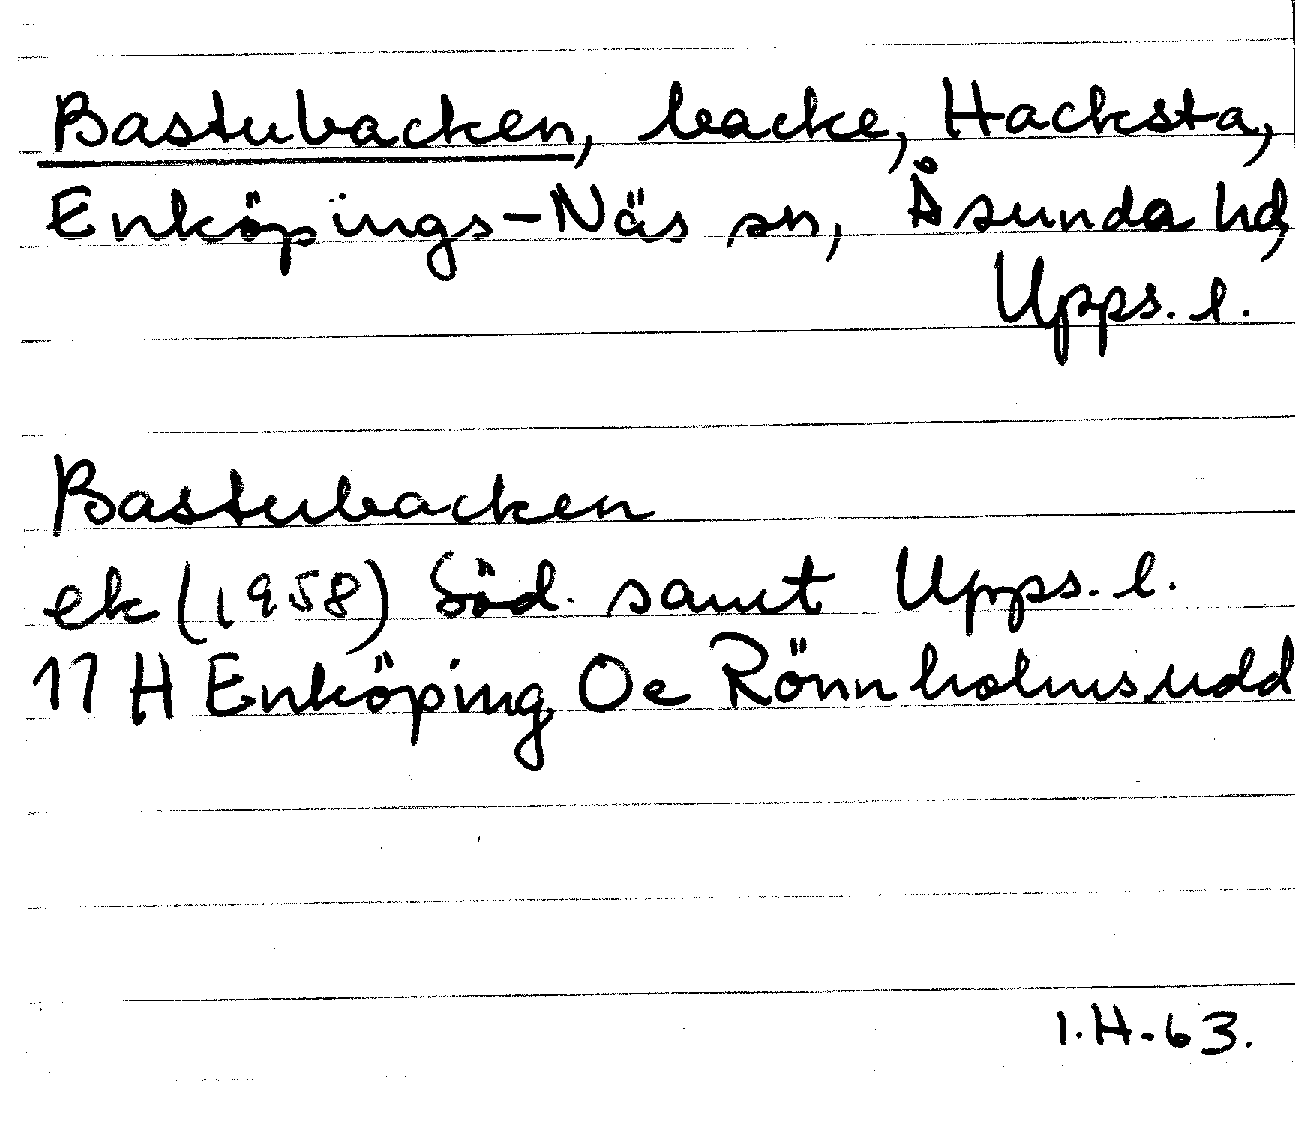 Bastubacken, backe, Hacksta,
Enköpings-Näs sn, Åsunda hd,
Upps. l.
Bastubacken
ek (1958) Söd. samt Upps. l.
11 H Enköping Oe Rönnholmsudd
I.H-63.